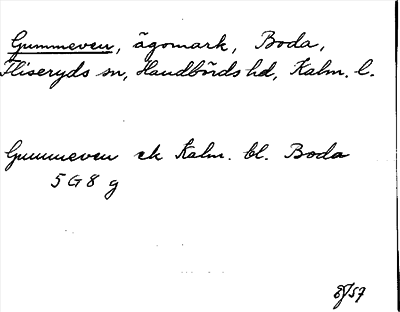 Gummeven, ägomark, Boda,
Fliseryds sn, Handbörds hd, Kalm. l.
Gummeven ek Kalm. bl. Boda
5 G 8 g